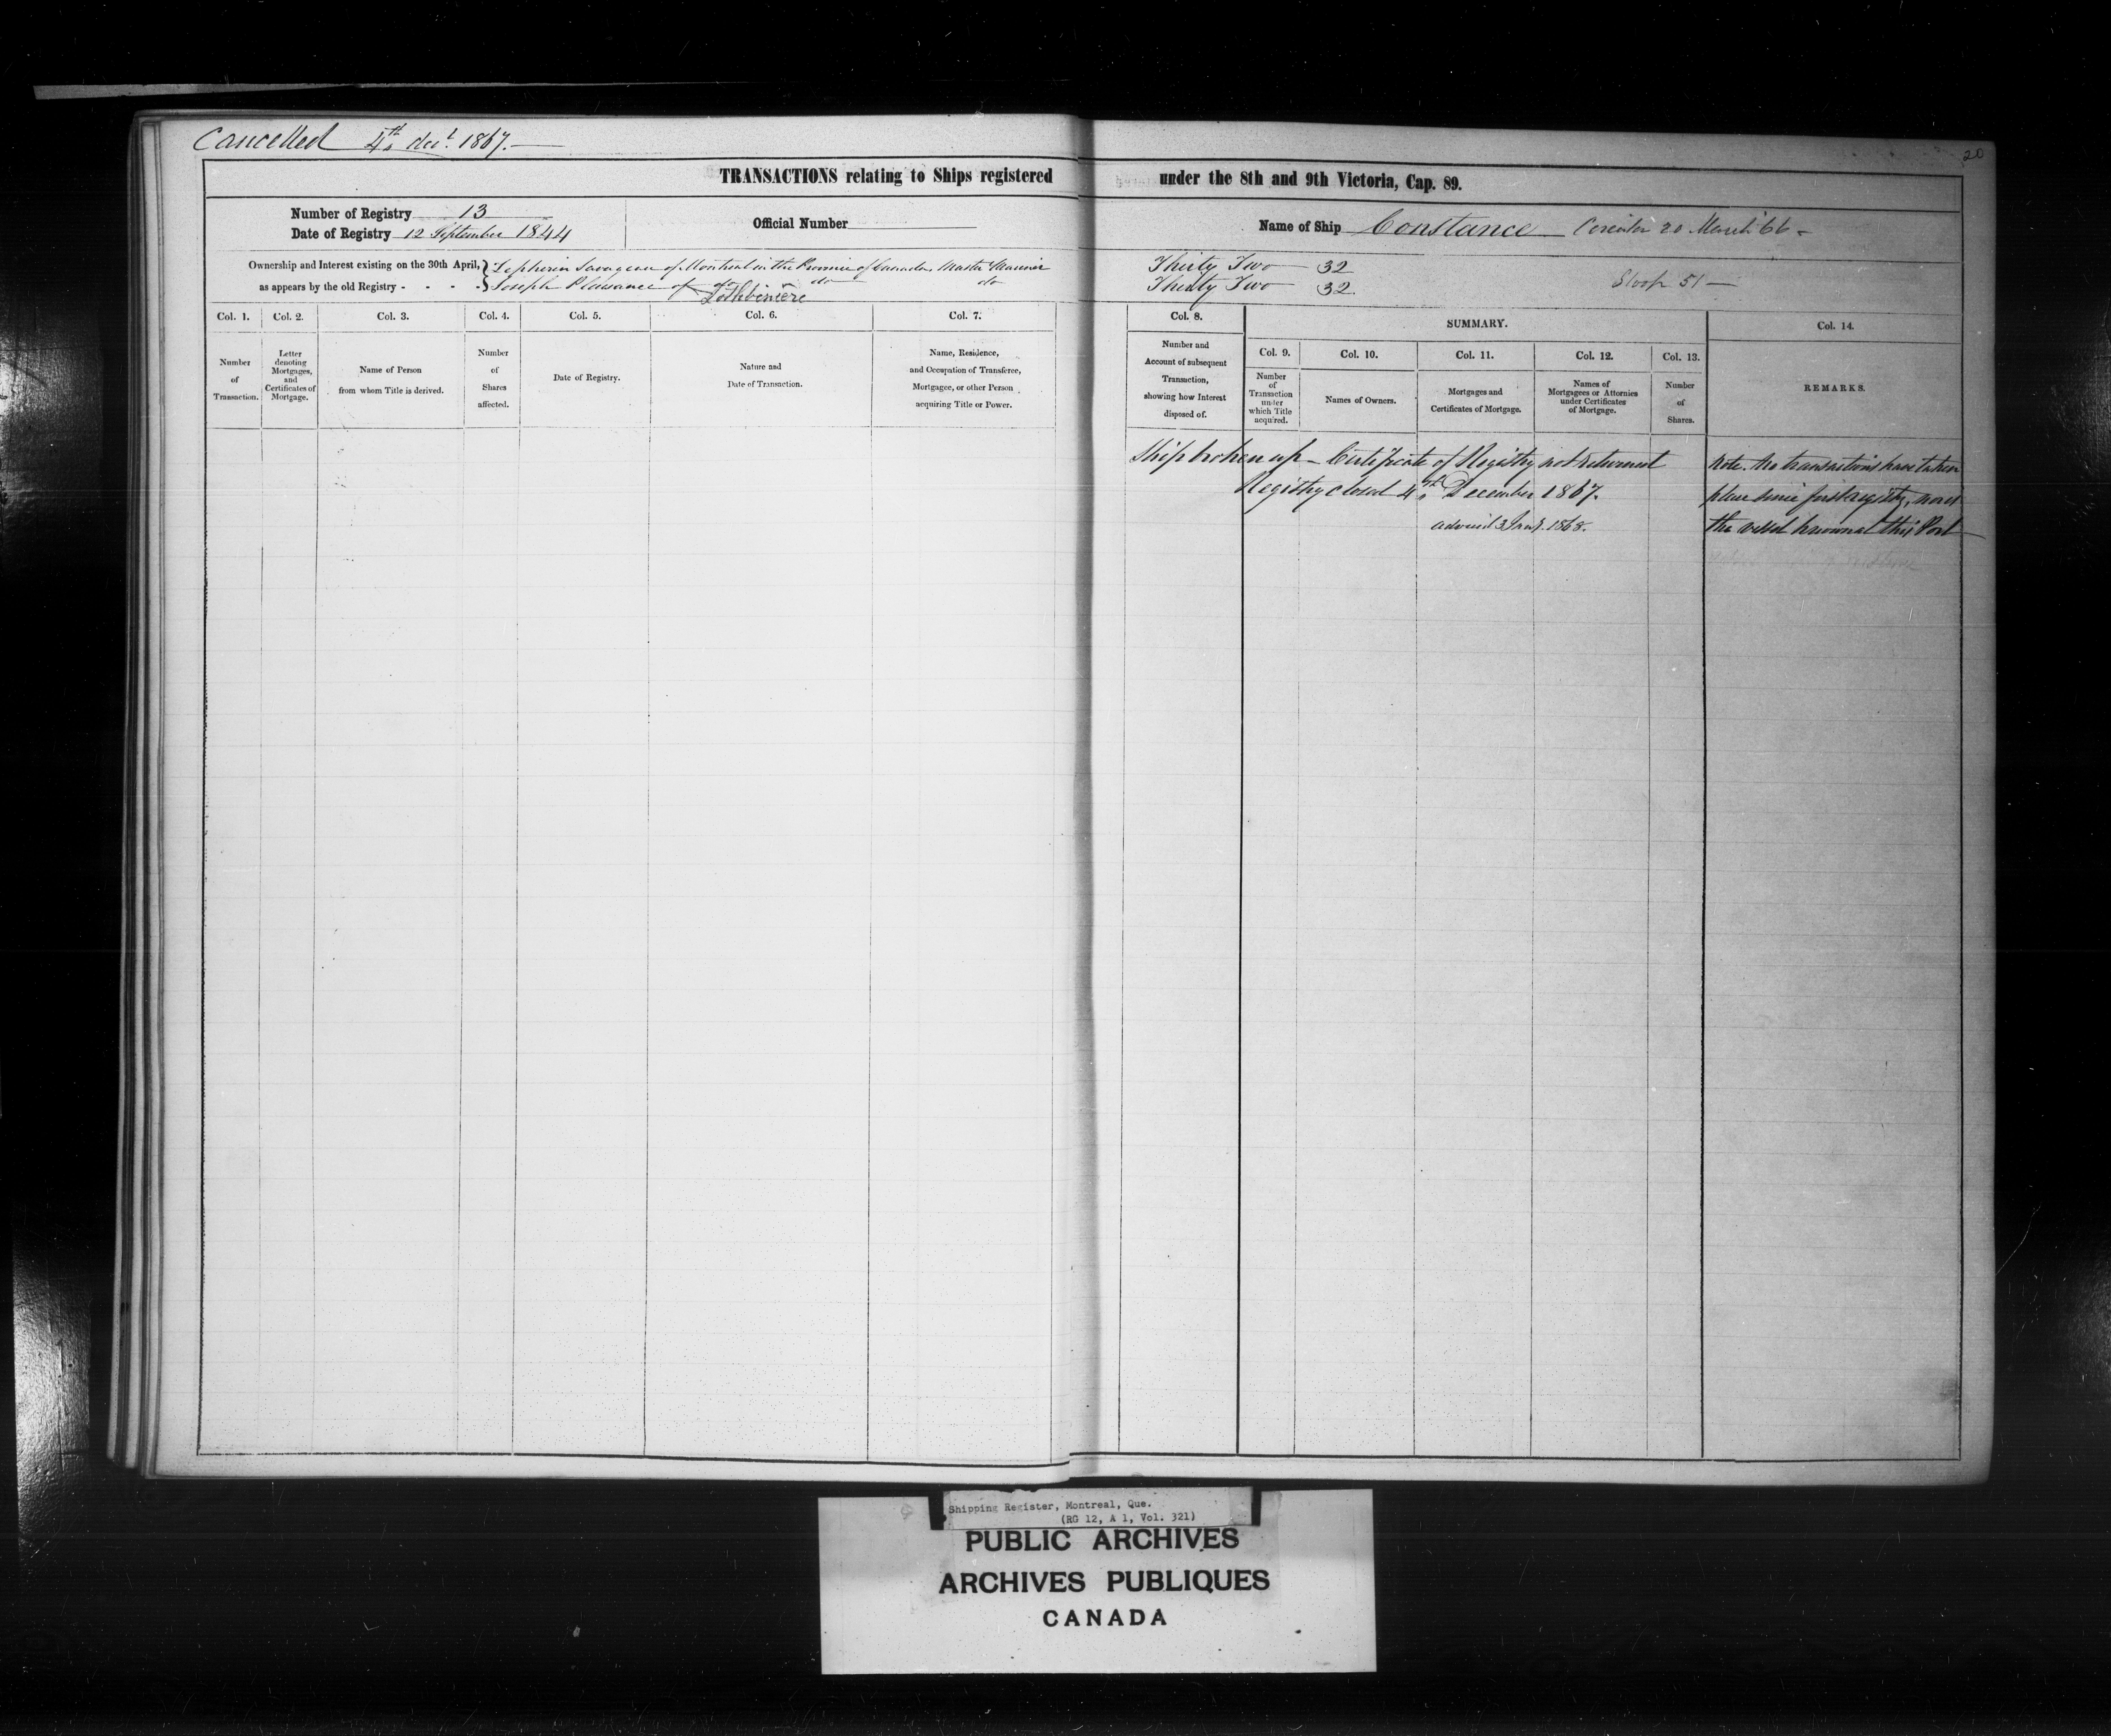 Cancelled 4th decr 1867.
20
TRANSACTIONS relating to Ships registered under the 8th and 9th Victoria, Cap. 89.
Number of Registry 13
Date of Registry 12 September 1844
Official Number
Name of Ship Constance Circular 20 March '66
Ownership and Interest existing on the 30th April, as appears by the old Registry - - - -
Zepherin Savageau of Montreal in the Province of Canada, Master Mariner Thirty Two 32
Joseph Plaisance of do do do Thirty Two 32
Lothbinière
Sloop 51
Col. 1.
Number of Transaction.
Col. 2.
Letter denoting Mortgages, and Certificates of Mortgage.
Col. 3.
Name of Person from whom Title is derived.
Col. 4.
Number of Shares affected.
Col. 5.
Date of Registry.
Col. 6.
Nature and Date of Transaction.
Col. 7.
Name, Residence, and Occupation of Transferee, Mortgagee, or other Person acquiring Title or Power.
Col. 8.
Number and Account of subsequent Transaction, showing how Interest disposed of.
SUMMARY.
Col. 9.
Number of Transaction under which Title acquired.
Col. 10.
Names of Owners.
Col. 11.
Mortgages and Certificates of Mortgage.
Col. 12.
Names of Mortgagees or Attornies under Certificates of Mortgage.
Col. 13.
Number of Shares.
Col. 14.
REMARKS.
Ship broken up - Certificate of Registry not returned
Registry closed 4th December 1867.
advised 3 Jany. 1868.
Note. No transactions have taken
place since first registry, nor is
the vessel known at this Port
Shipping Register, Montreal, Que.
(RG 12, A 1, Vol. 321)
PUBLIC ARCHIVES
ARCHIVES PUBLIQUES
CANADA